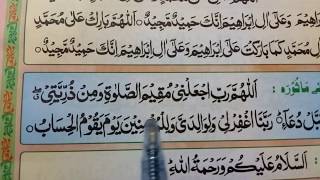 وَعَلٰٓى اٰلِ اِبْرَاهِيْمَ اِنَّكَ حَمِيْدٌ مَّجِيْدٌ ۝ اَللّٰهُمَّ بَارِكْ عَلٰى مُحَمَّدٍ
اٰلِ مُحَمَّدٍ كَمَا بَارَكْتَ عَلٰٓى اِبْرَاهِيْمَ وَعَلٰٓى اٰلِ اِبْرَاهِيْمَ اِنَّكَ حَمِيْدٌ مَّجِيْدٌ ۝
مَاثُوْرَه : اَللّٰهُمَّ رَبِّ اجْعَلْنِيْ مُقِيْمَ الصَّلٰوةِ وَمِنْ ذُرِّيَّتِيْ
دُعَآءِ ۝ رَبَّنَا اغْفِرْ لِيْ وَلِوَالِدَيَّ وَلِلْمُؤْمِنِيْنَ يَوْمَ يَقُوْمُ الْحِسَابُ ۝
: اَلسَّلَامُ عَلَيْكُمْ وَرَحْمَةُ اللّٰهِ